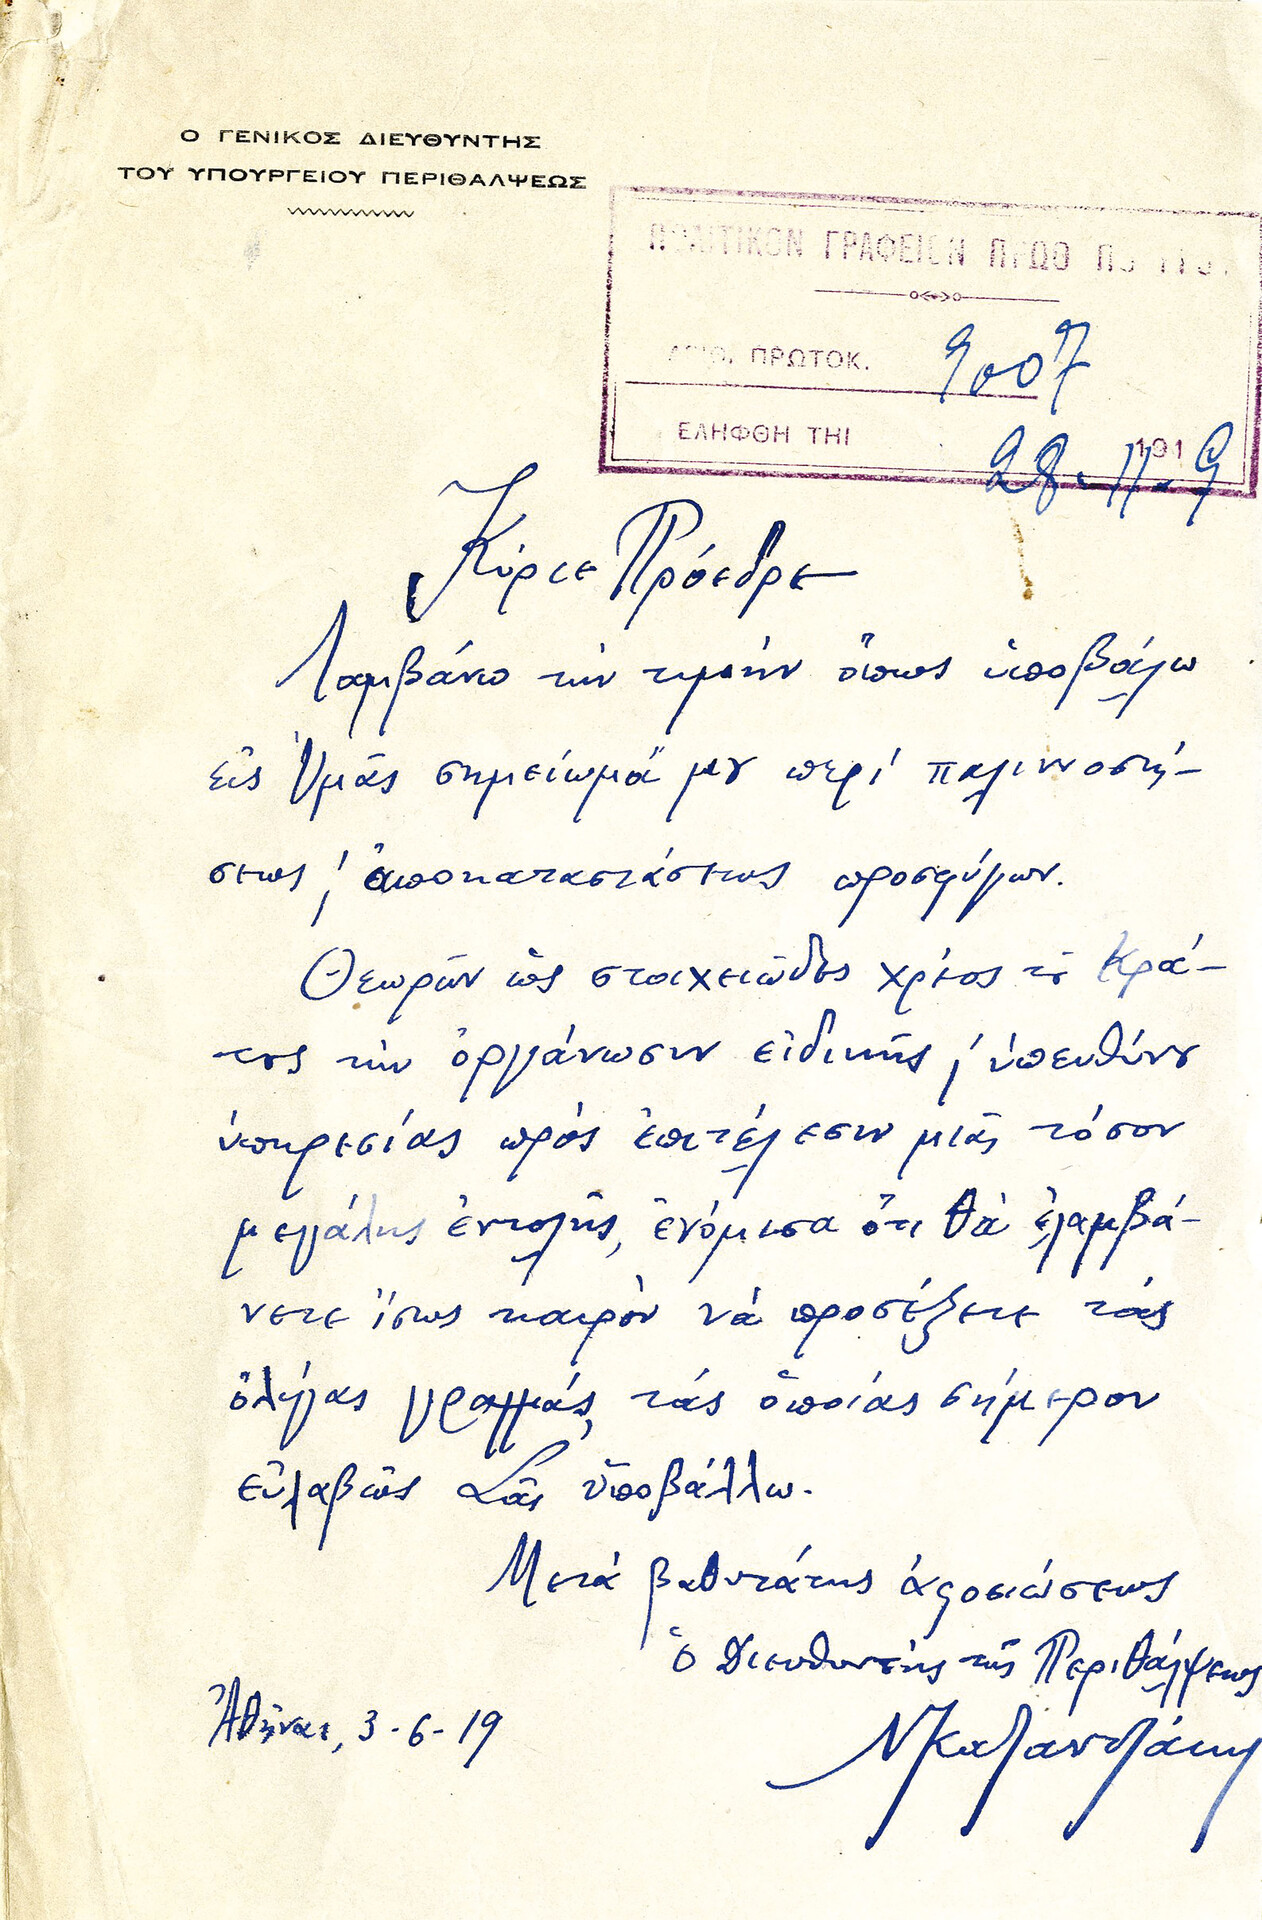 Ο ΓΕΝΙΚΟΣ ΔΙΕΥΘΥΝΤΗΣ
ΤΟΥ ΥΠΟΥΡΓΕΙΟΥ ΠΕΡΙΘΑΛΨΕΩΣ
ΠΟΛΙΤΙΚΟΝ ΓΡΑΦΕΙΟΝ
ΑΡΙΘ. ΠΡΩΤΟΚ. 9007
ΕΛΗΦΘΗ ΤΗΙ 28-11-9 191
Κύριε Πρόεδρε
Λαμβάνω τὴν τιμὴν ὅπως ὑποβάλω
εἰς Ὑμᾶς σημείωμά μου περὶ παλιννοστή-
σεως & ἀποκαταστάσεως προσφύγων.
Θεωρῶν ὡς στοιχειῶδες χρέος τοῦ Κρά-
τους τὴν ὀργάνωσιν εἰδικῆς & ὑπευθύνου
ὑπηρεσίας πρὸς ἐπιτέλεσιν μιᾶς τόσον
μεγάλης ἐντολῆς, ἐνόμισα ὅτι θὰ ἐλαμβά-
νετε ἴσως καιρὸν νὰ προσέξετε τὰς
ὀλίγας γραμμάς, τὰς ὁποίας σήμερον
εὐλαβῶς Σᾶς ὑποβάλλω.
Μετὰ βαθυτάτης ἀφοσιώσεως
ὁ Διευθυντὴς τῆς Περιθάλψεως
Ἀθῆναι, 3-6-19
ΝΚαζαντζάκης